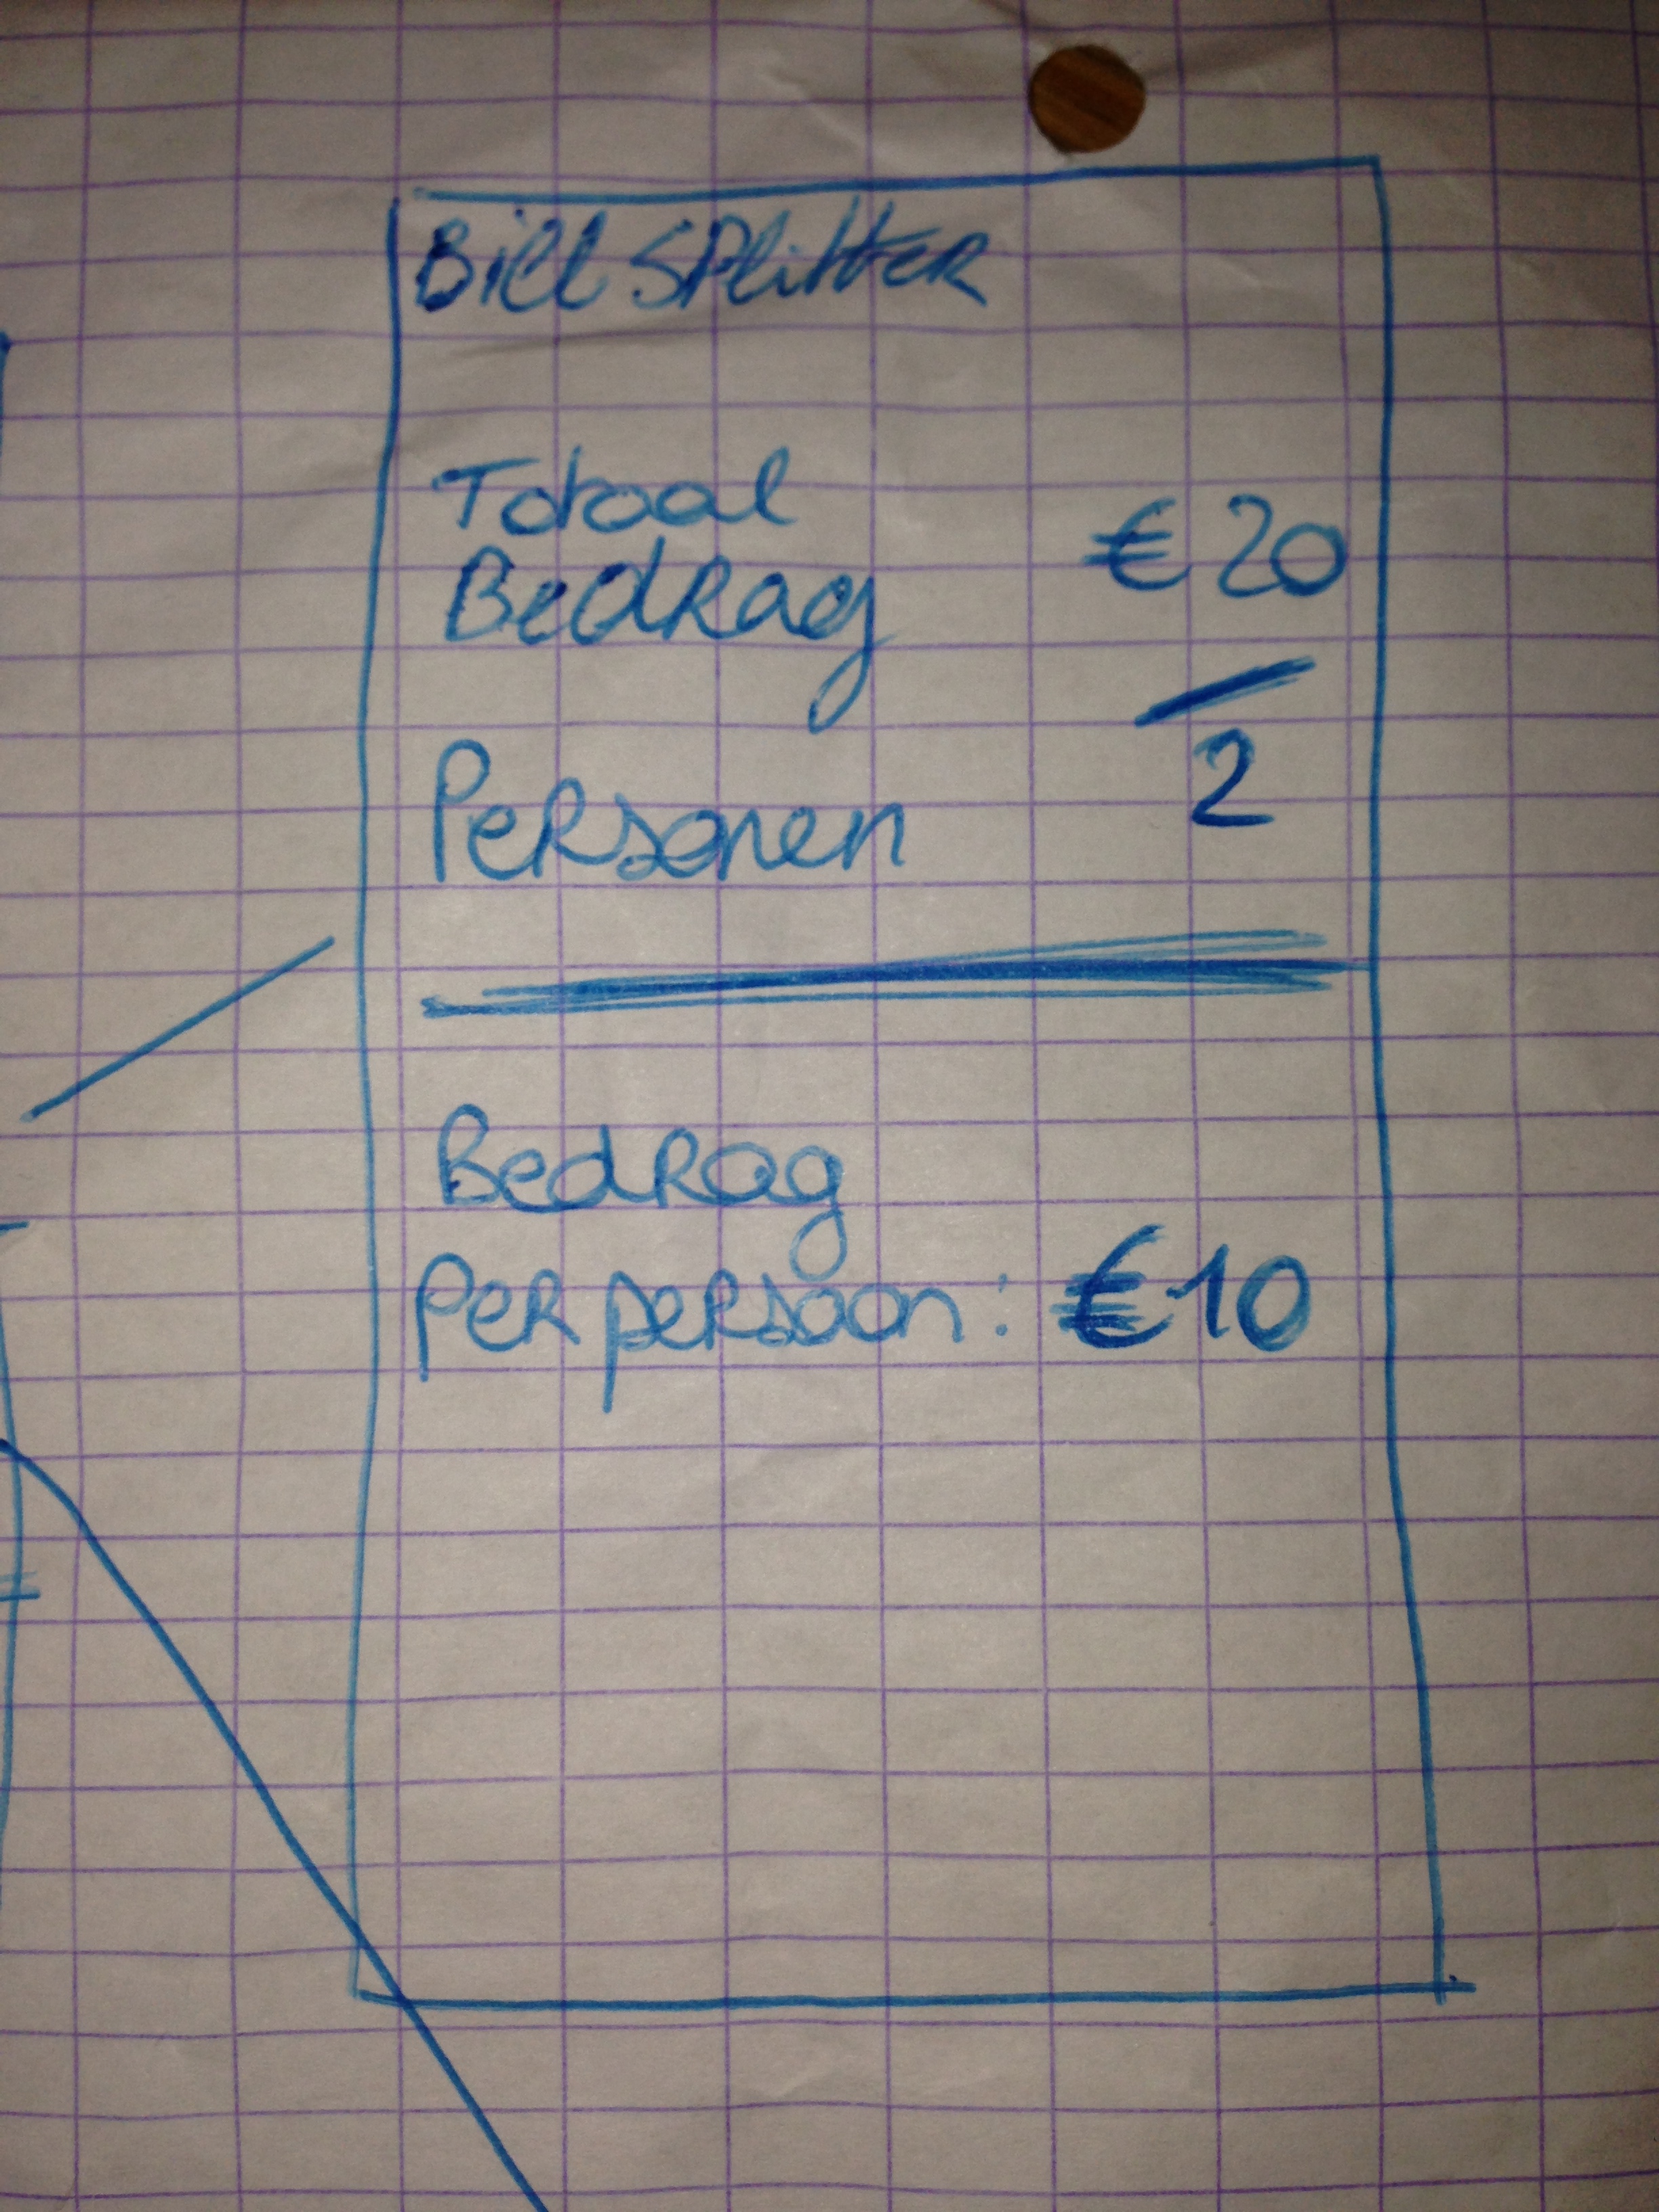 Bill Splitter
Totaal
Bedrag €20
/
Personen 2
Bedrag
Per persoon: €10